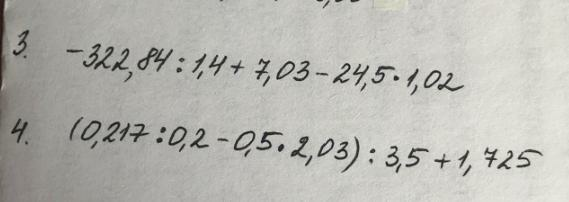 3. -322,84:1,4+7,03-24,5·1,02
4. (0,217:0,2-0,5·2,03):3,5+1,725